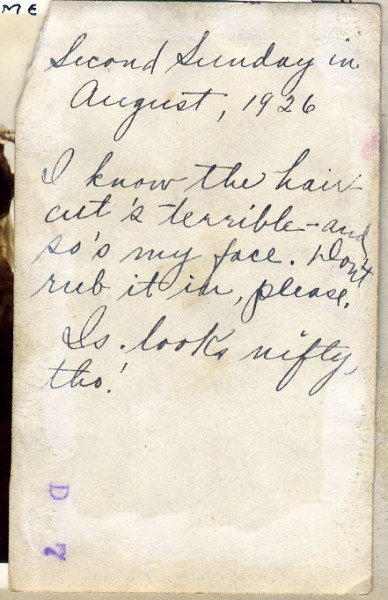 ME
Second Sunday in
August, 1926
I know the hair-
cut's terrible - and
so's my face. Don't
rub it in, please.
Is. looks nifty,
tho!
D 7